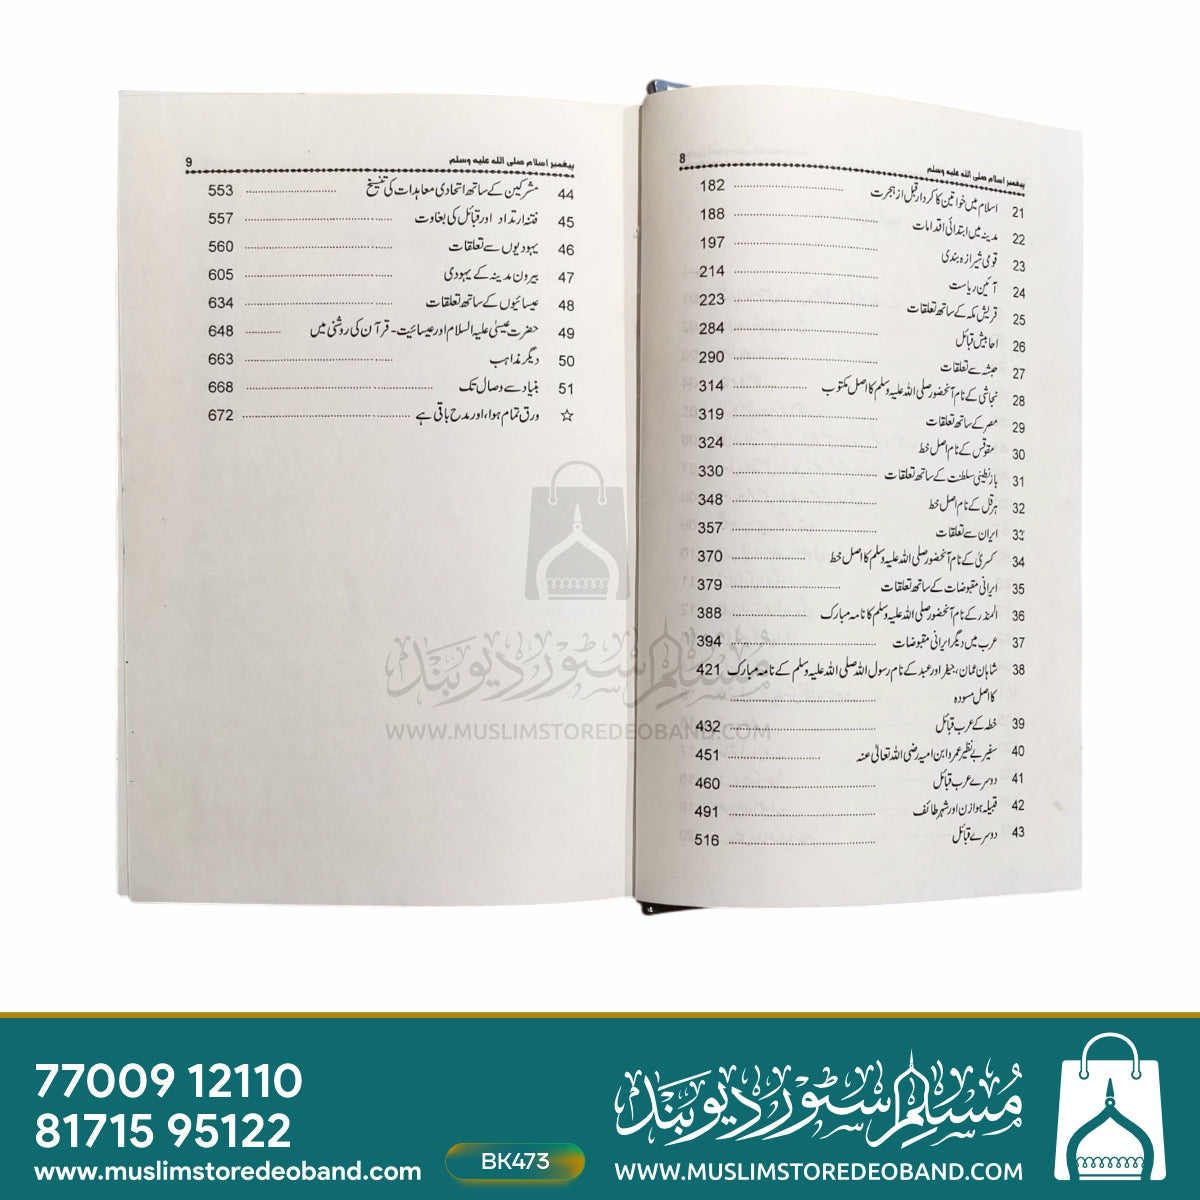 8 پیغمبر اسلام صلی الله علیه وسلم
21 اسلام میں خواتین کا کردار قبل از ہجرت 182
22 مدینہ میں ابتدائی اقدامات 188
23 قومی شیرازہ بندی 197
24 آئین ریاست 214
25 قریش مکہ کے ساتھ تعلقات 223
26 احابیش قبائل 284
27 حبشہ سے تعلقات 290
28 نجاشی کے نام آنحضور صلی اللہ علیہ وسلم کا اصل مکتوب 314
29 مصر کے ساتھ تعلقات 319
30 مقوقس کے نام اصل خط 324
31 بازنطینی سلطنت کے ساتھ تعلقات 330
32 ہرقل کے نام اصل خط 348
33 ایران سے تعلقات 357
34 کسریٰ کے نام آنحضور صلی اللہ علیہ وسلم کا اصل خط 370
35 ایرانی مقبوضات کے ساتھ تعلقات 379
36 المنذر کے نام آنحضور صلی اللہ علیہ وسلم کا نامہ مبارک 388
37 عرب میں دیگر ایرانی مقبوضات 394
38 شاہان عمان، جیفر اور عبد کے نام رسول اللہ صلی اللہ علیہ وسلم کے نامہ مبارک 421
کا اصل مسودہ
39 خطہ کے عرب قبائل 432
40 سفیر بے نظیر عمرو ابن امیہ رضی اللہ تعالیٰ عنہ 451
41 دوسرے عرب قبائل 460
42 قبیلہ ہوازن اور شہر طائف 491
43 دوسرے قبائل 516
9 پیغمبر اسلام صلی الله علیه وسلم
44 مشرکین کے ساتھ اتحادی معاہدات کی تنسیخ 553
45 فتنہ ارتداد اور قبائل کی بغاوت 557
46 یہودیوں سے تعلقات 560
47 بیرون مدینہ کے یہودی 605
48 عیسائیوں کے ساتھ تعلقات 634
49 حضرت عیسیٰ علیہ السلام اور عیسائیت - قرآن کی روشنی میں 648
50 دیگر مذاہب 663
51 بنیاد سے وصال تک 668
☆ ورق تمام ہوا، اور مدح باقی ہے 672
مسلم سٹور دیوبند
WWW.MUSLIMSTOREDEOBAND.COM
77009 12110
81715 95122
www.muslimstoredeoband.com
BK473
مسلم سٹور دیوبند
WWW.MUSLIMSTOREDEOBAND.COM